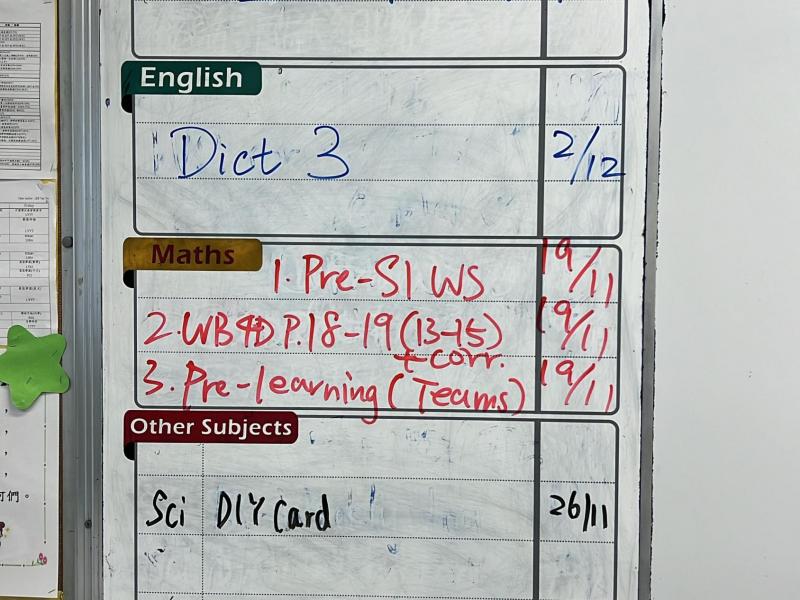 English
Dict 3 2/12
Maths
1. Pre-S1 WS 19/11
2. WB4D P.18-19 (13-15) 19/11
+ corr.
3. Pre-learning (Teams) 19/11
Other Subjects
Sci DIY Card 26/11
們。